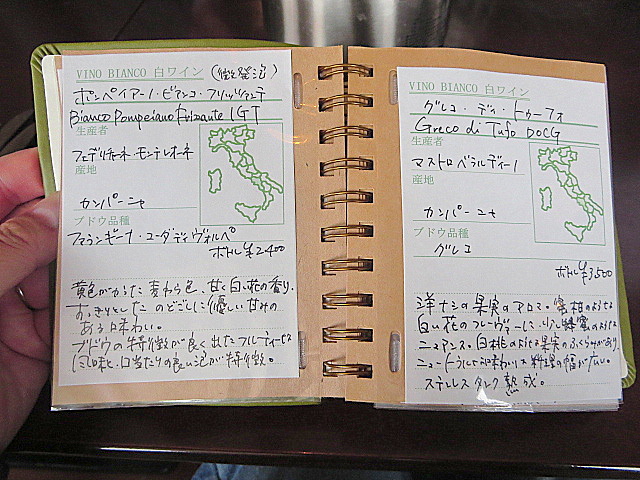 VINO BIANCO 白ワイン (微発泡)
ポンペイアーノ・ビアンコ・フリッツァンテ
Bianco Pompeiano Frizzante IGT
生産者
フェデリチャーネ・モンテレオーネ
産地
カンパーニャ
ブドウ品種
ファランギーナ・コーダ ディ ヴォルペ
ボトル ¥2400
黄色がかった麦わら色、甘く白い花の香り。
すっきりとしたのどごしに優しい甘みの
ある味わい。
ブドウの特徴が良く出たフルーティーな
風味と、口当たりの良い泡が特徴。
VINO BIANCO 白ワイン
グレコ・ディ・トゥーフォ
Greco di Tufo DOCG
生産者
マストロベラルディーノ
産地
カンパーニャ
ブドウ品種
グレコ
ボトル ¥3,500
洋ナシの果実のアロマ。
白い花のフレーヴァーに、蜂蜜のような
ニュアンス。白桃のような果実のふくらみがあり
ニュートラルな味わいは料理の幅が広い。
ステンレスタンク熟成。